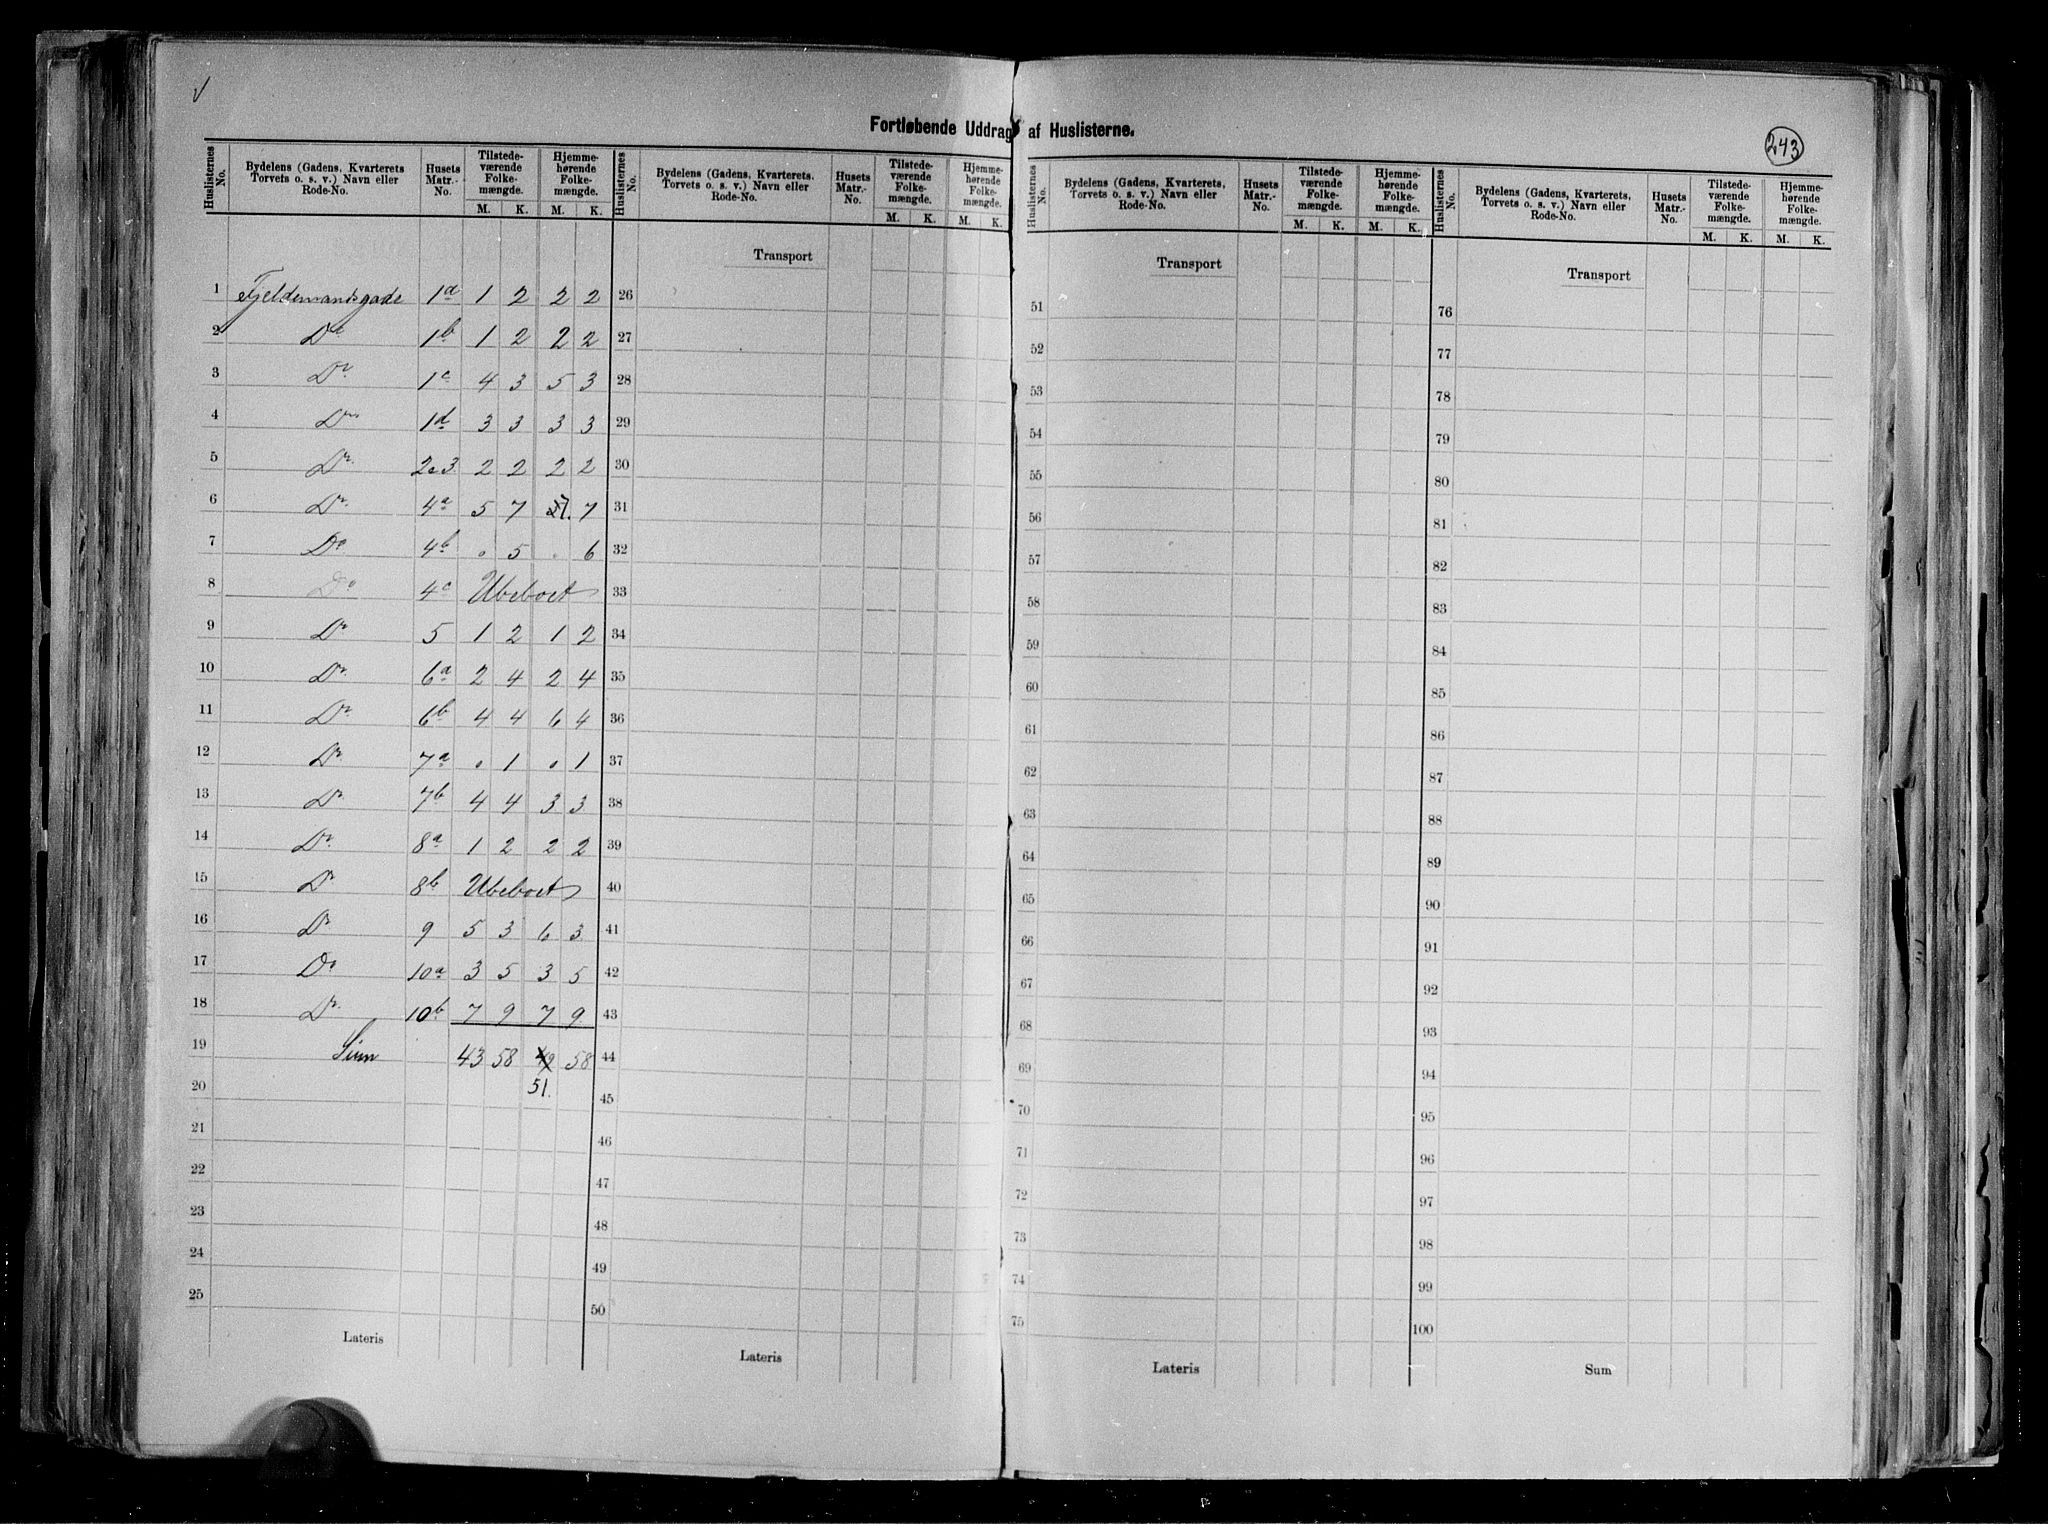 Fortløbende Uddrag af Huslisterne.
243
Huslisternes No. | Bydelens (Gadens, Kvarterets Torvets o. s. v.) Navn eller Rode-No. | Husets Matr.-No. | Tilstedeværende Folkemængde. M. K. | Hjemmehørende Folkemængde. M. K.
1 Fjeldemandsgade 1a 1 2 2 2
2 Do 1b 1 2 2 2
3 Do 1c 4 3 5 3
4 Do 1d 3 3 3 3
5 Do 2&3 2 2 2 2
6 Do 4a 5 7 7. 7
7 Do 4b . 5 . 6
8 Do 4c Ubeboet
9 Do 5 1 2 1 2
10 Do 6a 2 4 2 4
11 Do 6b 4 4 6 4
12 Do 7a . 1 . 1
13 Do 7b 4 4 3 3
14 Do 8a 1 2 2 2
15 Do 8b Ubeboet
16 Do 9 5 3 6 3
17 Do 10a 3 5 3 5
18 Do 10b 7 9 7 9
19 Sum 43 58 49 58
20 51.
21
22
23
24
25
Lateris
Huslisternes No. | Bydelens (Gadens, Kvarterets, Torvets o. s. v.) Navn eller Rode-No. | Husets Matr.-No. | Tilstedeværende Folkemængde. M. K. | Hjemmehørende Folkemængde. M. K.
Transport
26
27
28
29
30
31
32
33
34
35
36
37
38
39
40
41
42
43
44
45
46
47
48
49
50
Lateris
Huslisternes No. | Bydelens (Gadens, Kvarterets, Torvets o. s. v.) Navn eller Rode-No. | Husets Matr.-No. | Tilstedeværende Folkemængde. M. K. | Hjemmehørende Folkemængde. M. K.
Transport
51
52
53
54
55
56
57
58
59
60
61
62
63
64
65
66
67
68
69
70
71
72
73
74
75
Lateris
Huslisternes No. | Bydelens (Gadens, Kvarterets, Torvets o. s. v.) Navn eller Rode-No. | Husets Matr.-No. | Tilstedeværende Folkemængde. M. K. | Hjemmehørende Folkemængde. M. K.
Transport
76
77
78
79
80
81
82
83
84
85
86
87
88
89
90
91
92
93
94
95
96
97
98
99
100
Sum